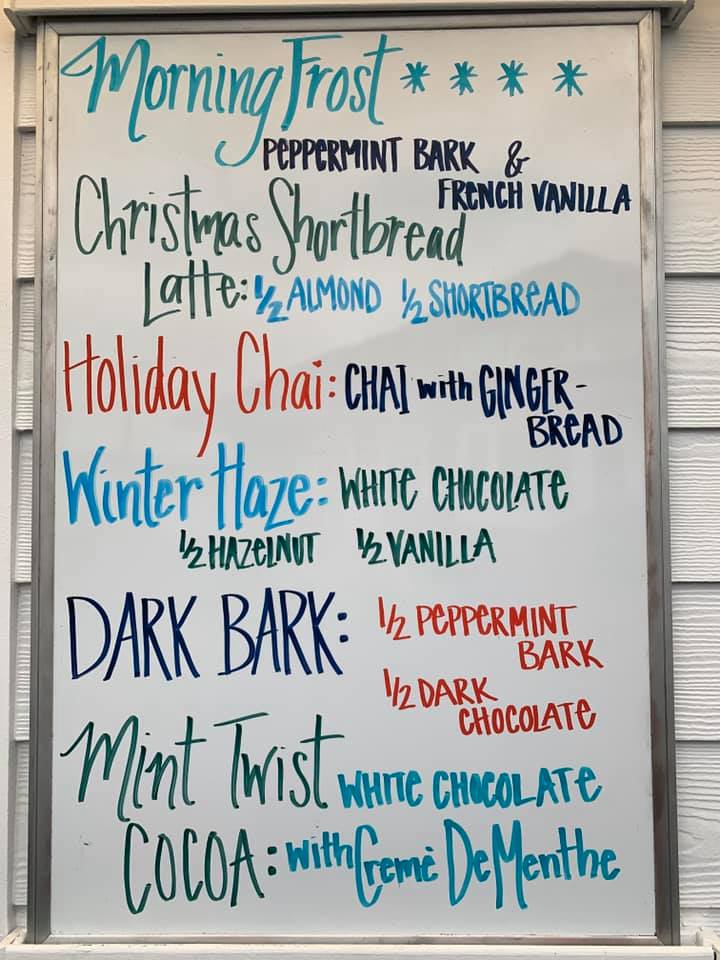 Morning Frost * * * *
PEPPERMINT BARK &
FRENCH VANILLA
Christmas Shortbread
Latte: 1/2 ALMOND 1/2 SHORTBREAD
Holiday Chai: CHAI with GINGER-
BREAD
Winter Haze: WHITE CHOCOLATE
1/2 HAZELNUT 1/2 VANILLA
DARK BARK: 1/2 PEPPERMINT
BARK
1/2 DARK
CHOCOLATE
Mint Twist WHITE CHOCOLATE
COCOA: with Cremè DeMenthe